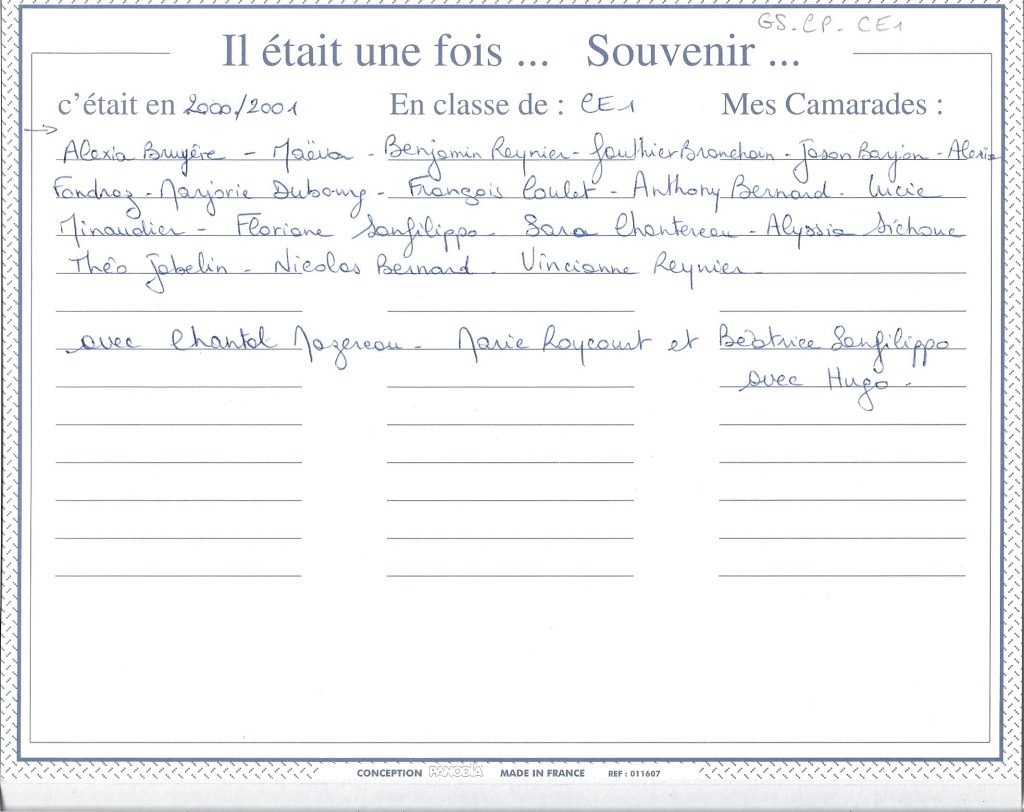 GS. CP. CE1
Il était une fois ... Souvenir ...
c'était en 2000/2001 En classe de : CE1 Mes Camarades :
Alexia Bruyère - Maëva - Benjamin Reynier - Gauthier Branchain - Jason Barjon - Alexia
Fondraz - Marjorie Dubourg - François Coulet - Anthony Bernard - Lucie
Minaudier - Floriane Sanfilippo - Sara Chantereau - Alyssia Sichouc
Théo Jabelin - Nicolas Bernard - Vincianne Reynier
avec Chantal Mazereau - Marie Roycourt et Béatrice Sanfilippo
avec Hugo.
CONCEPTION PANODIA MADE IN FRANCE REF : 011607